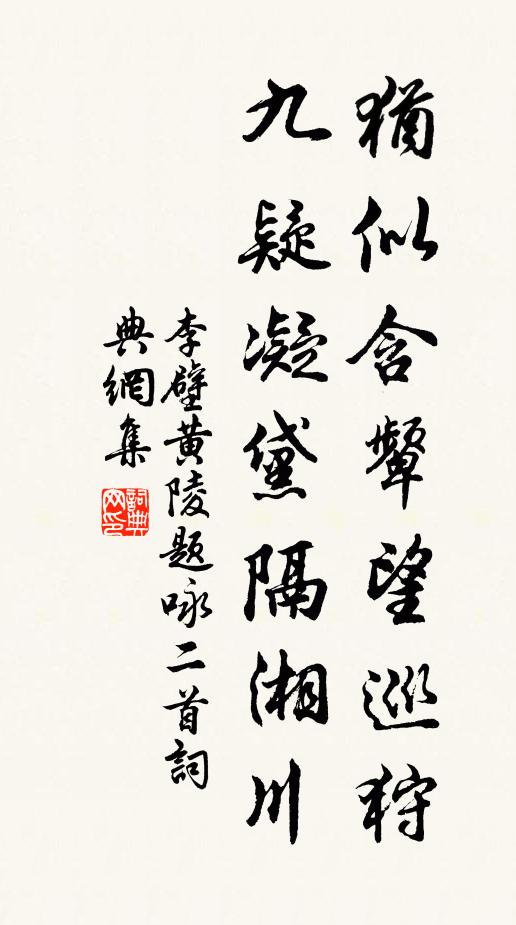 猶似含顰望巡狩
九疑凝黛隔湘川
李壁黄陵題咏二首詞
典網集
詞典网印